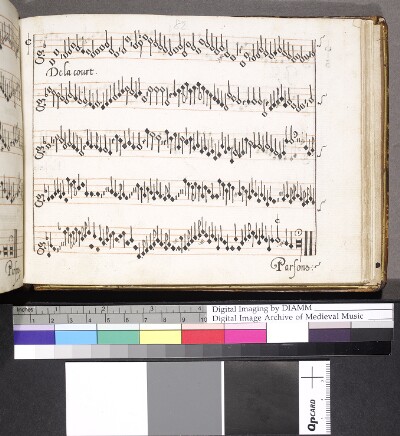 De la court.
Parsons:
inches
1 2 3 4
1 2 3 4 5 6 7 8 9 10
Digital Imaging by DIAMM
Digital Image Archive of Medieval Music
QPCARD